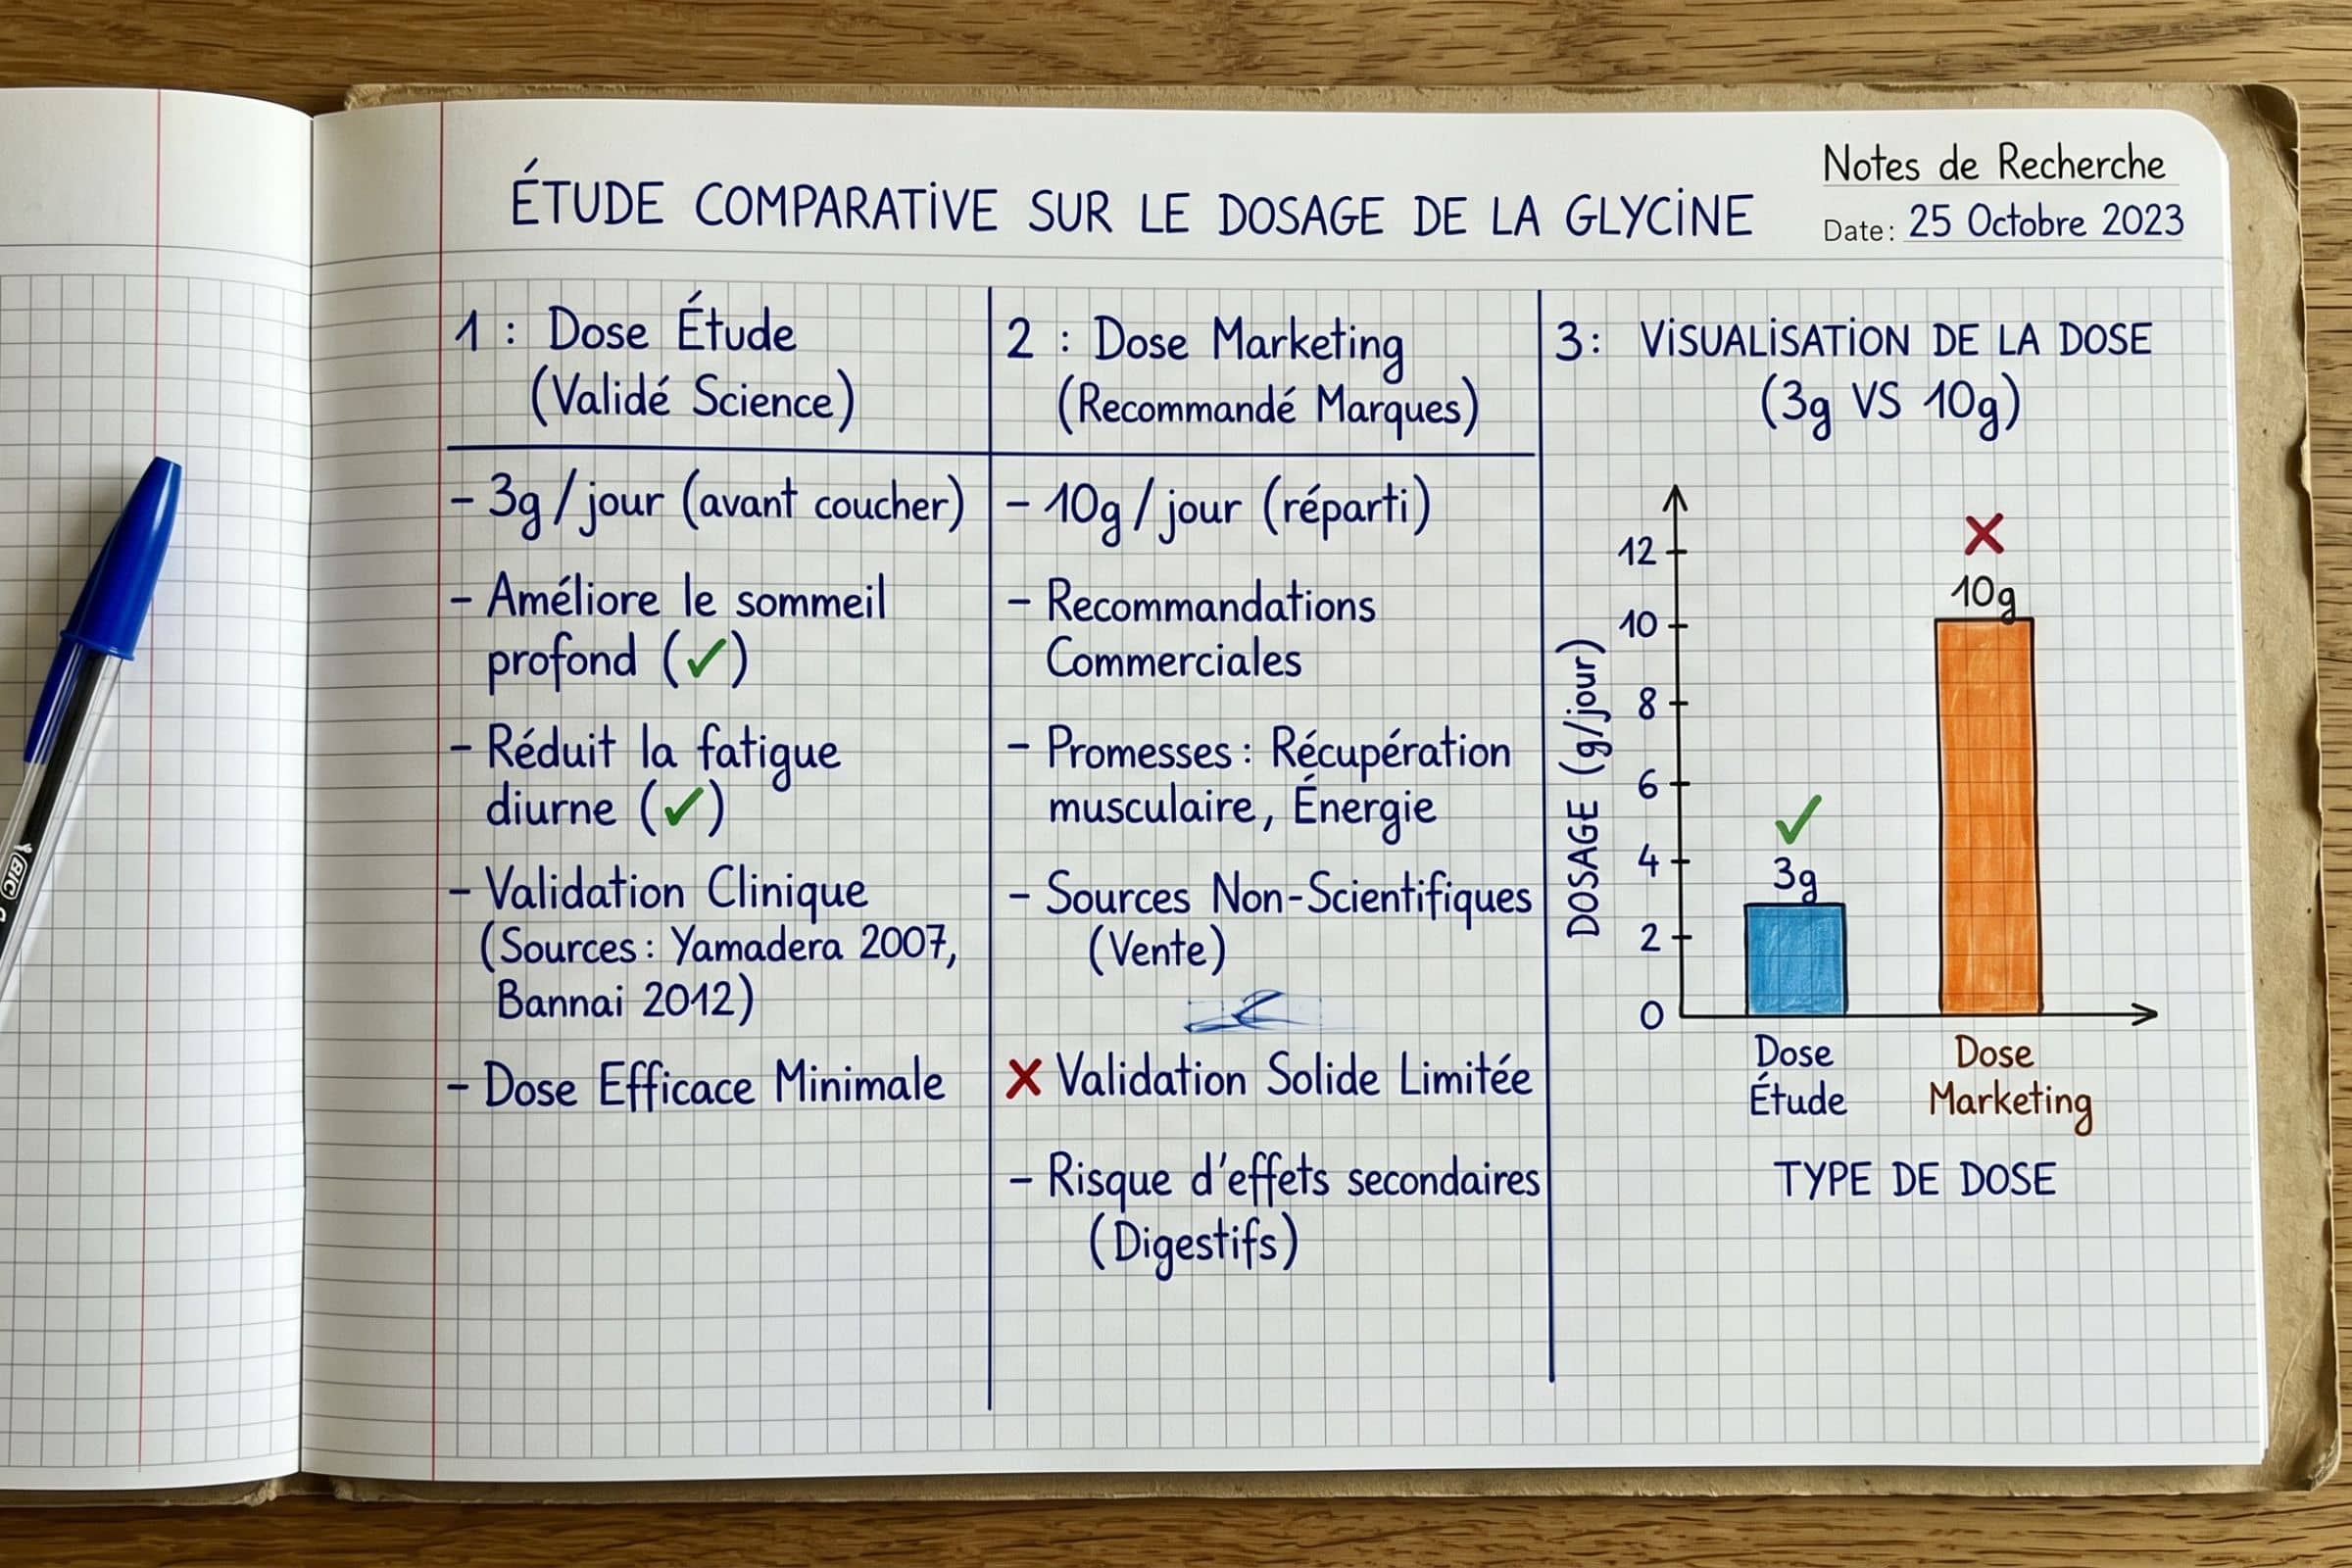 ÉTUDE COMPARATIVE SUR LE DOSAGE DE LA GLYCINE
Notes de Recherche
Date: 25 Octobre 2023
1 : Dose Étude
(Validé Science)
- 3g/jour (avant coucher)
- Améliore le sommeil
profond (✓)
- Réduit la fatigue
diurne (✓)
- Validation Clinique
(Sources: Yamadera 2007,
Bannai 2012)
- Dose Efficace Minimale
2 : Dose Marketing
(Recommandé Marques)
- 10g/jour (réparti)
- Recommandations
Commerciales
- Promesses: Récupération
musculaire, Énergie
- Sources Non-Scientifiques
(Vente)
✗ Validation Solide Limitée
- Risque d'effets secondaires
(Digestifs)
3: VISUALISATION DE LA DOSE
(3g VS 10g)
DOSAGE (g/jour)
12
10
8
6
4
2
0
✓
3g
✗
10g
Dose
Étude
Dose
Marketing
TYPE DE DOSE
BIC